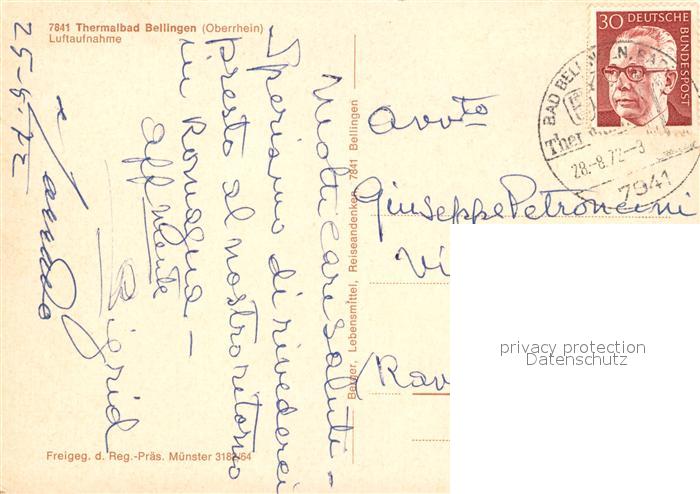 7841 Thermalbad Bellingen (Oberrhein)
Luftaufnahme
25-8-72
Molti cari saluti -
Speriamo di rivederci
presto al nostro ritorno
in Romagna -
aff/mente
Sigrid
Berger, Lebensmittel, Reiseandenken, 7841 Bellingen
Freigeg. d. Reg.-Präs. Münster 3182/64
30 DEUTSCHE
BUNDESPOST
BAD BELLINGEN
28.-8.72-
7841
Avv/to
Giuseppe Petroncini
Vi
Rav
privacy protection
Datenschutz